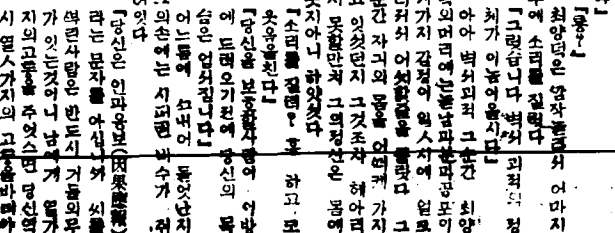 『룡』
최양덕은 깜작 놀라서 어마지
두에 소리를 질럿다
『그럿습니다 벽쇠 괴적의 정
체가 이놈이올시다』
아아 벽쇠괴적 그 순간 최양
덕의머리에는 놀남과 분과 공포이
가지 감정이 일시에 일
러서서 어쩔줄을 몰랏다 그
순간 자긔의 몸을 어떠케 가지
고 잇섯던지 그것조차 헤아리
지 못할만치 그의정신은 몸에
붓지아니 하얏섯다
『소리를 질러? 흥 하고 코
웃음을친다
『당신을 보호할사람이 이방
에 드러오기전에 당신의 목
슴은 업서집니다』
어느틈에 끄내어 들엇난지
의손에는 시퍼런 비수가 쥐
어잇다
『당신은 인과응보(因果應報)
라는 문자를 아십니까 씨를
뿌린사람은 반드시 거둘의무
가 잇는것이니 남에게 열가
지의고통을 주엇스면 당신역
시 열스가지의 고통을바더야